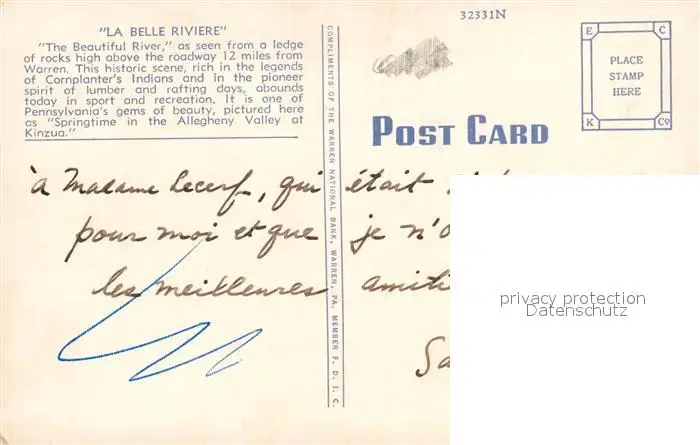 "LA BELLE RIVIERE"
"The Beautiful River," as seen from a ledge
of rocks high above the roadway 12 miles from
Warren. This historic scene, rich in the legends
of Cornplanter's Indians and in the pioneer
spirit of lumber and rafting days, abounds
today in sport and recreation. It is one of
Pennsylvania's gems of beauty, pictured here
as "Springtime in the Allegheny Valley at
Kinzua."
COMPLIMENTS OF THE WARREN NATIONAL BANK, WARREN, PA. MEMBER F. D. I. C.
32331N
POST CARD
E C
PLACE
STAMP
HERE
K Co
à Madame Lecerf, qui était
pour moi et que je n'o
les meilleures amiti
Sa
privacy protection
Datenschutz